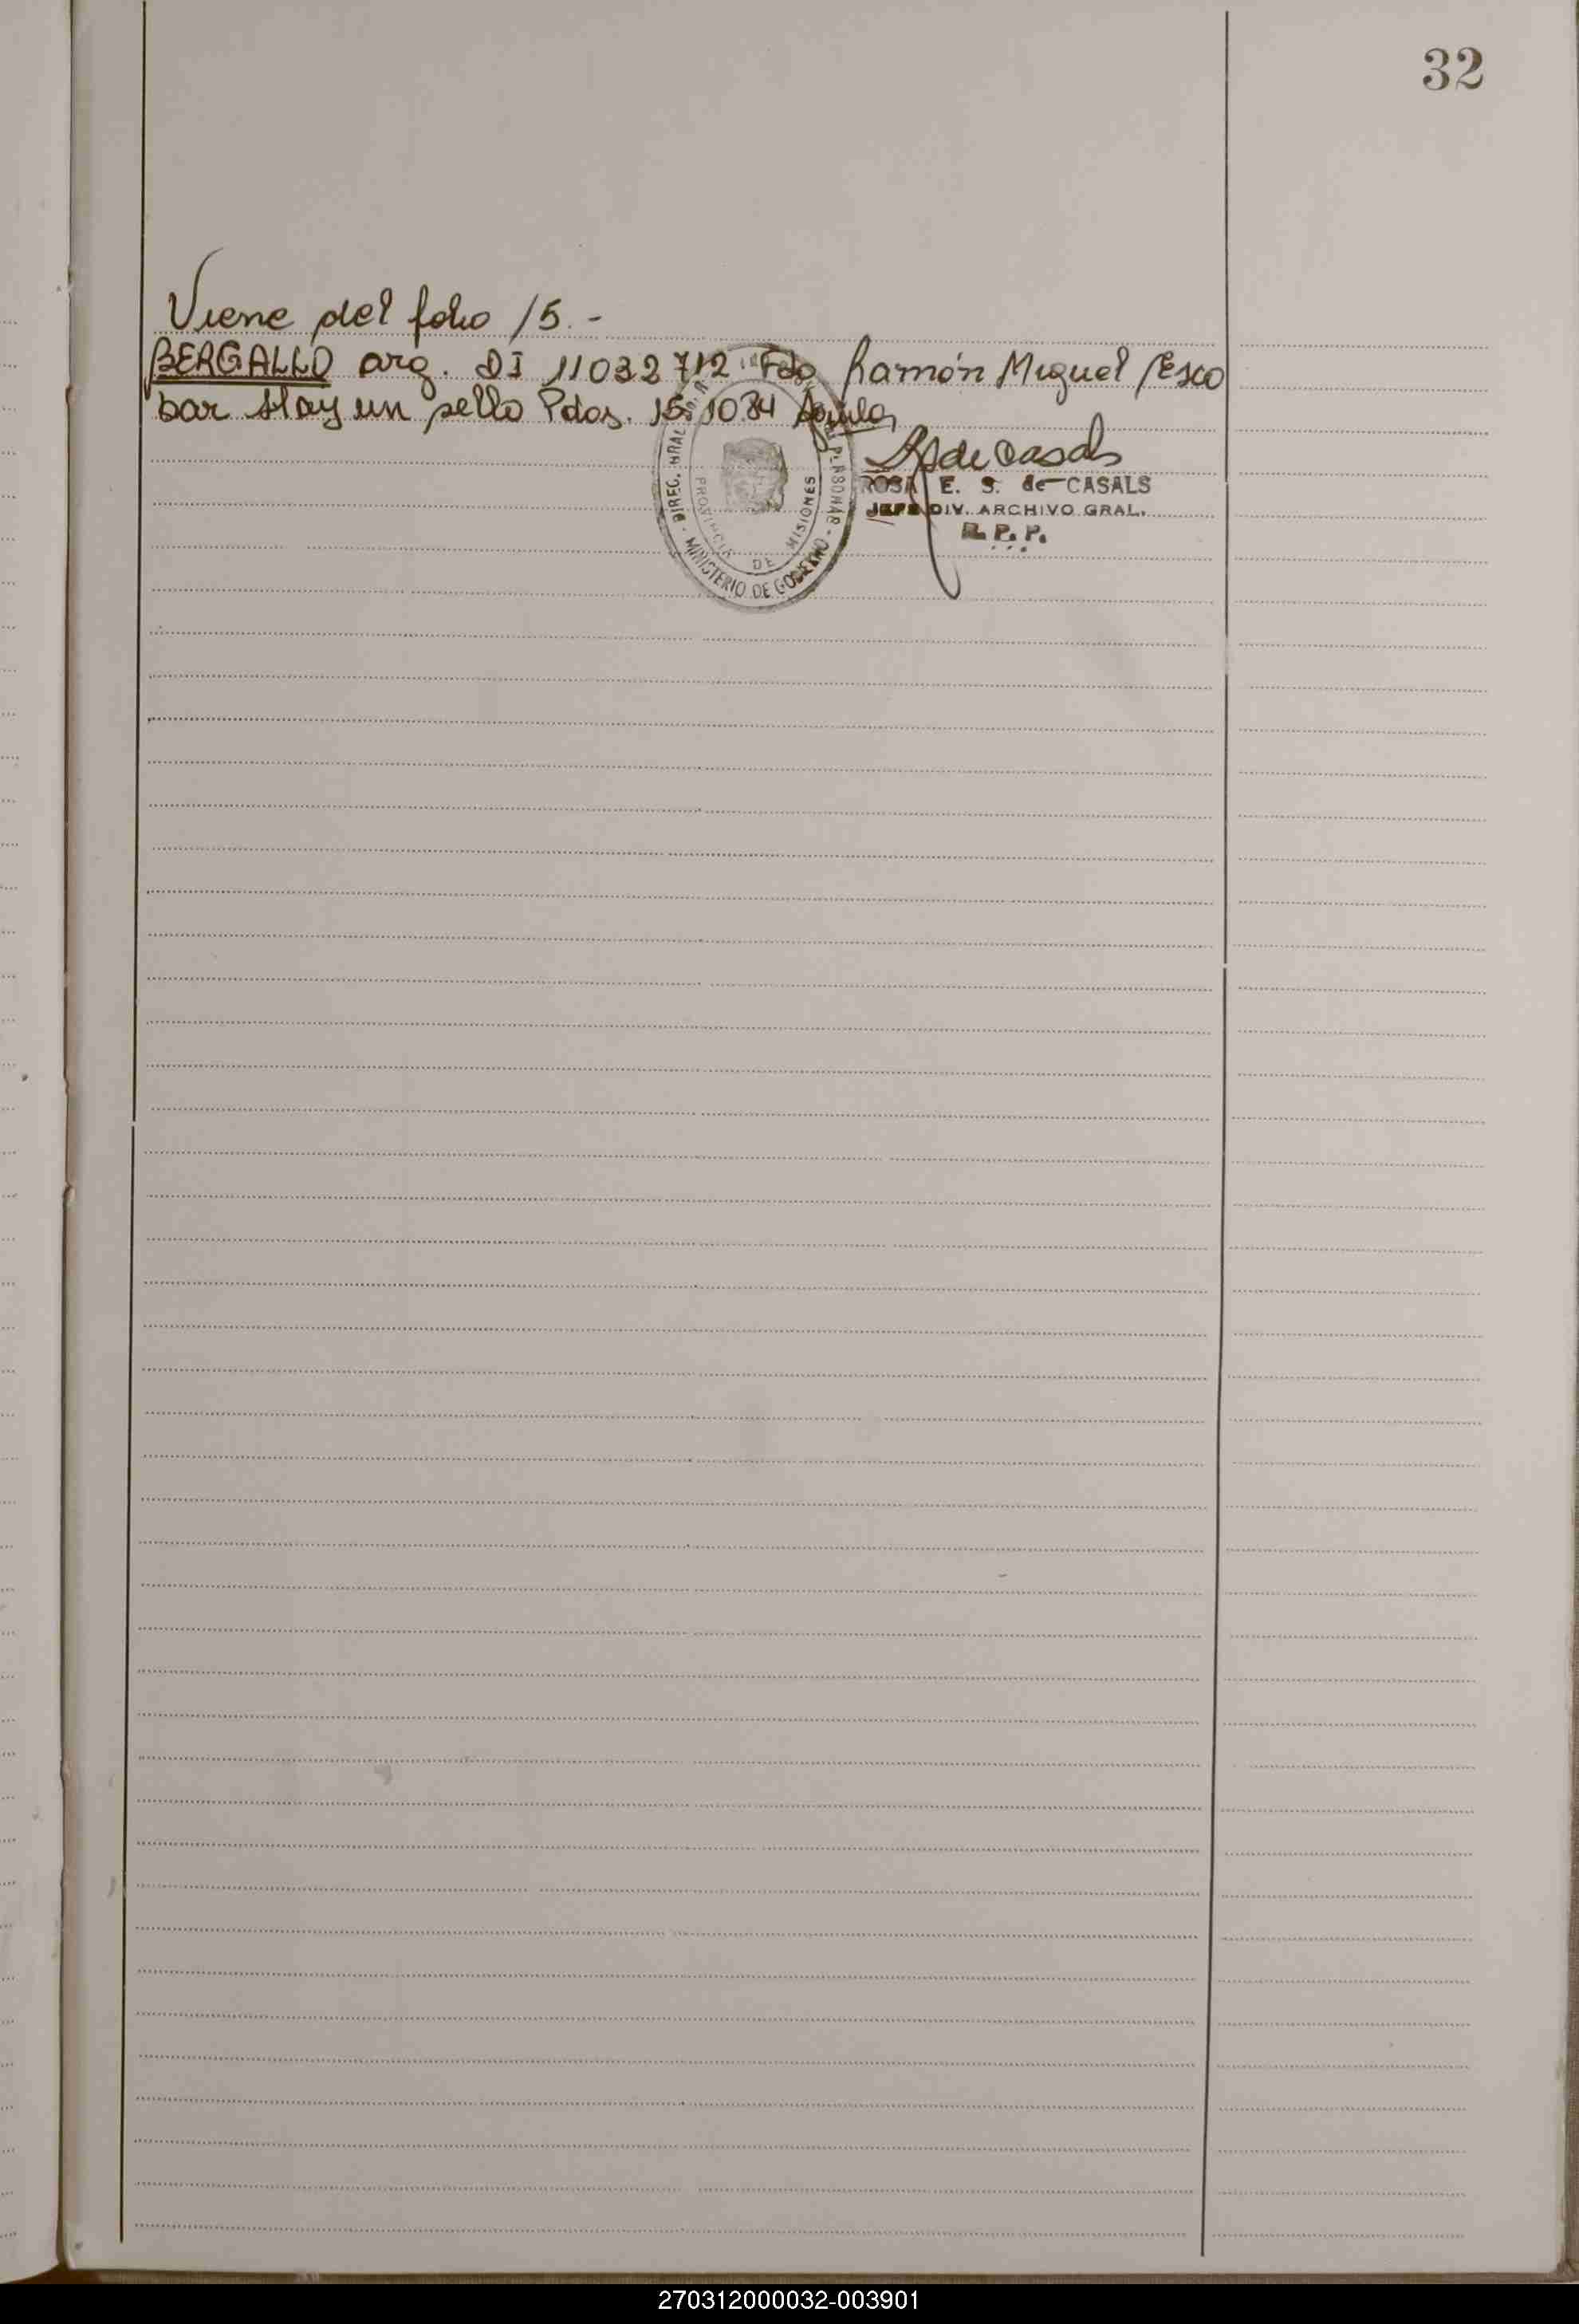 32
Viene del folio 15.-
BERGALLO arg. DI 11032712 Fdo Ramón Miguel Esco
bar Hay un sello Pdas. 15 1084 
R de Casals
ROSA E. S. de CASALS
JEFE DIV. ARCHIVO GRAL.
R. P. P.
DIREC. GRAL.
MINISTERIO DE GOBIERNO
PROVINCIA DE MISIONES
270312000032-003901